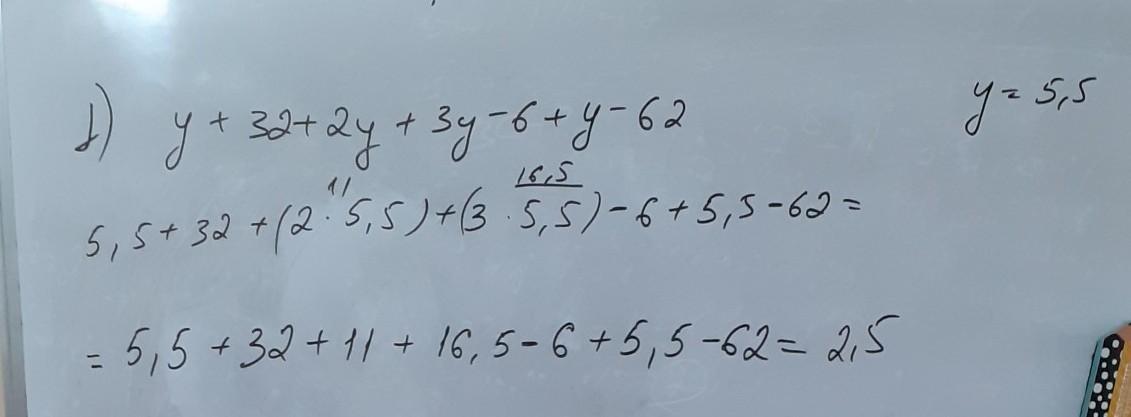 1) y + 32 + 2y + 3y - 6 + y - 62 y = 5,5
11 16,5
5,5 + 32 + (2 · 5,5) + (3 · 5,5) - 6 + 5,5 - 62 =
= 5,5 + 32 + 11 + 16,5 - 6 + 5,5 - 62 = 2,5